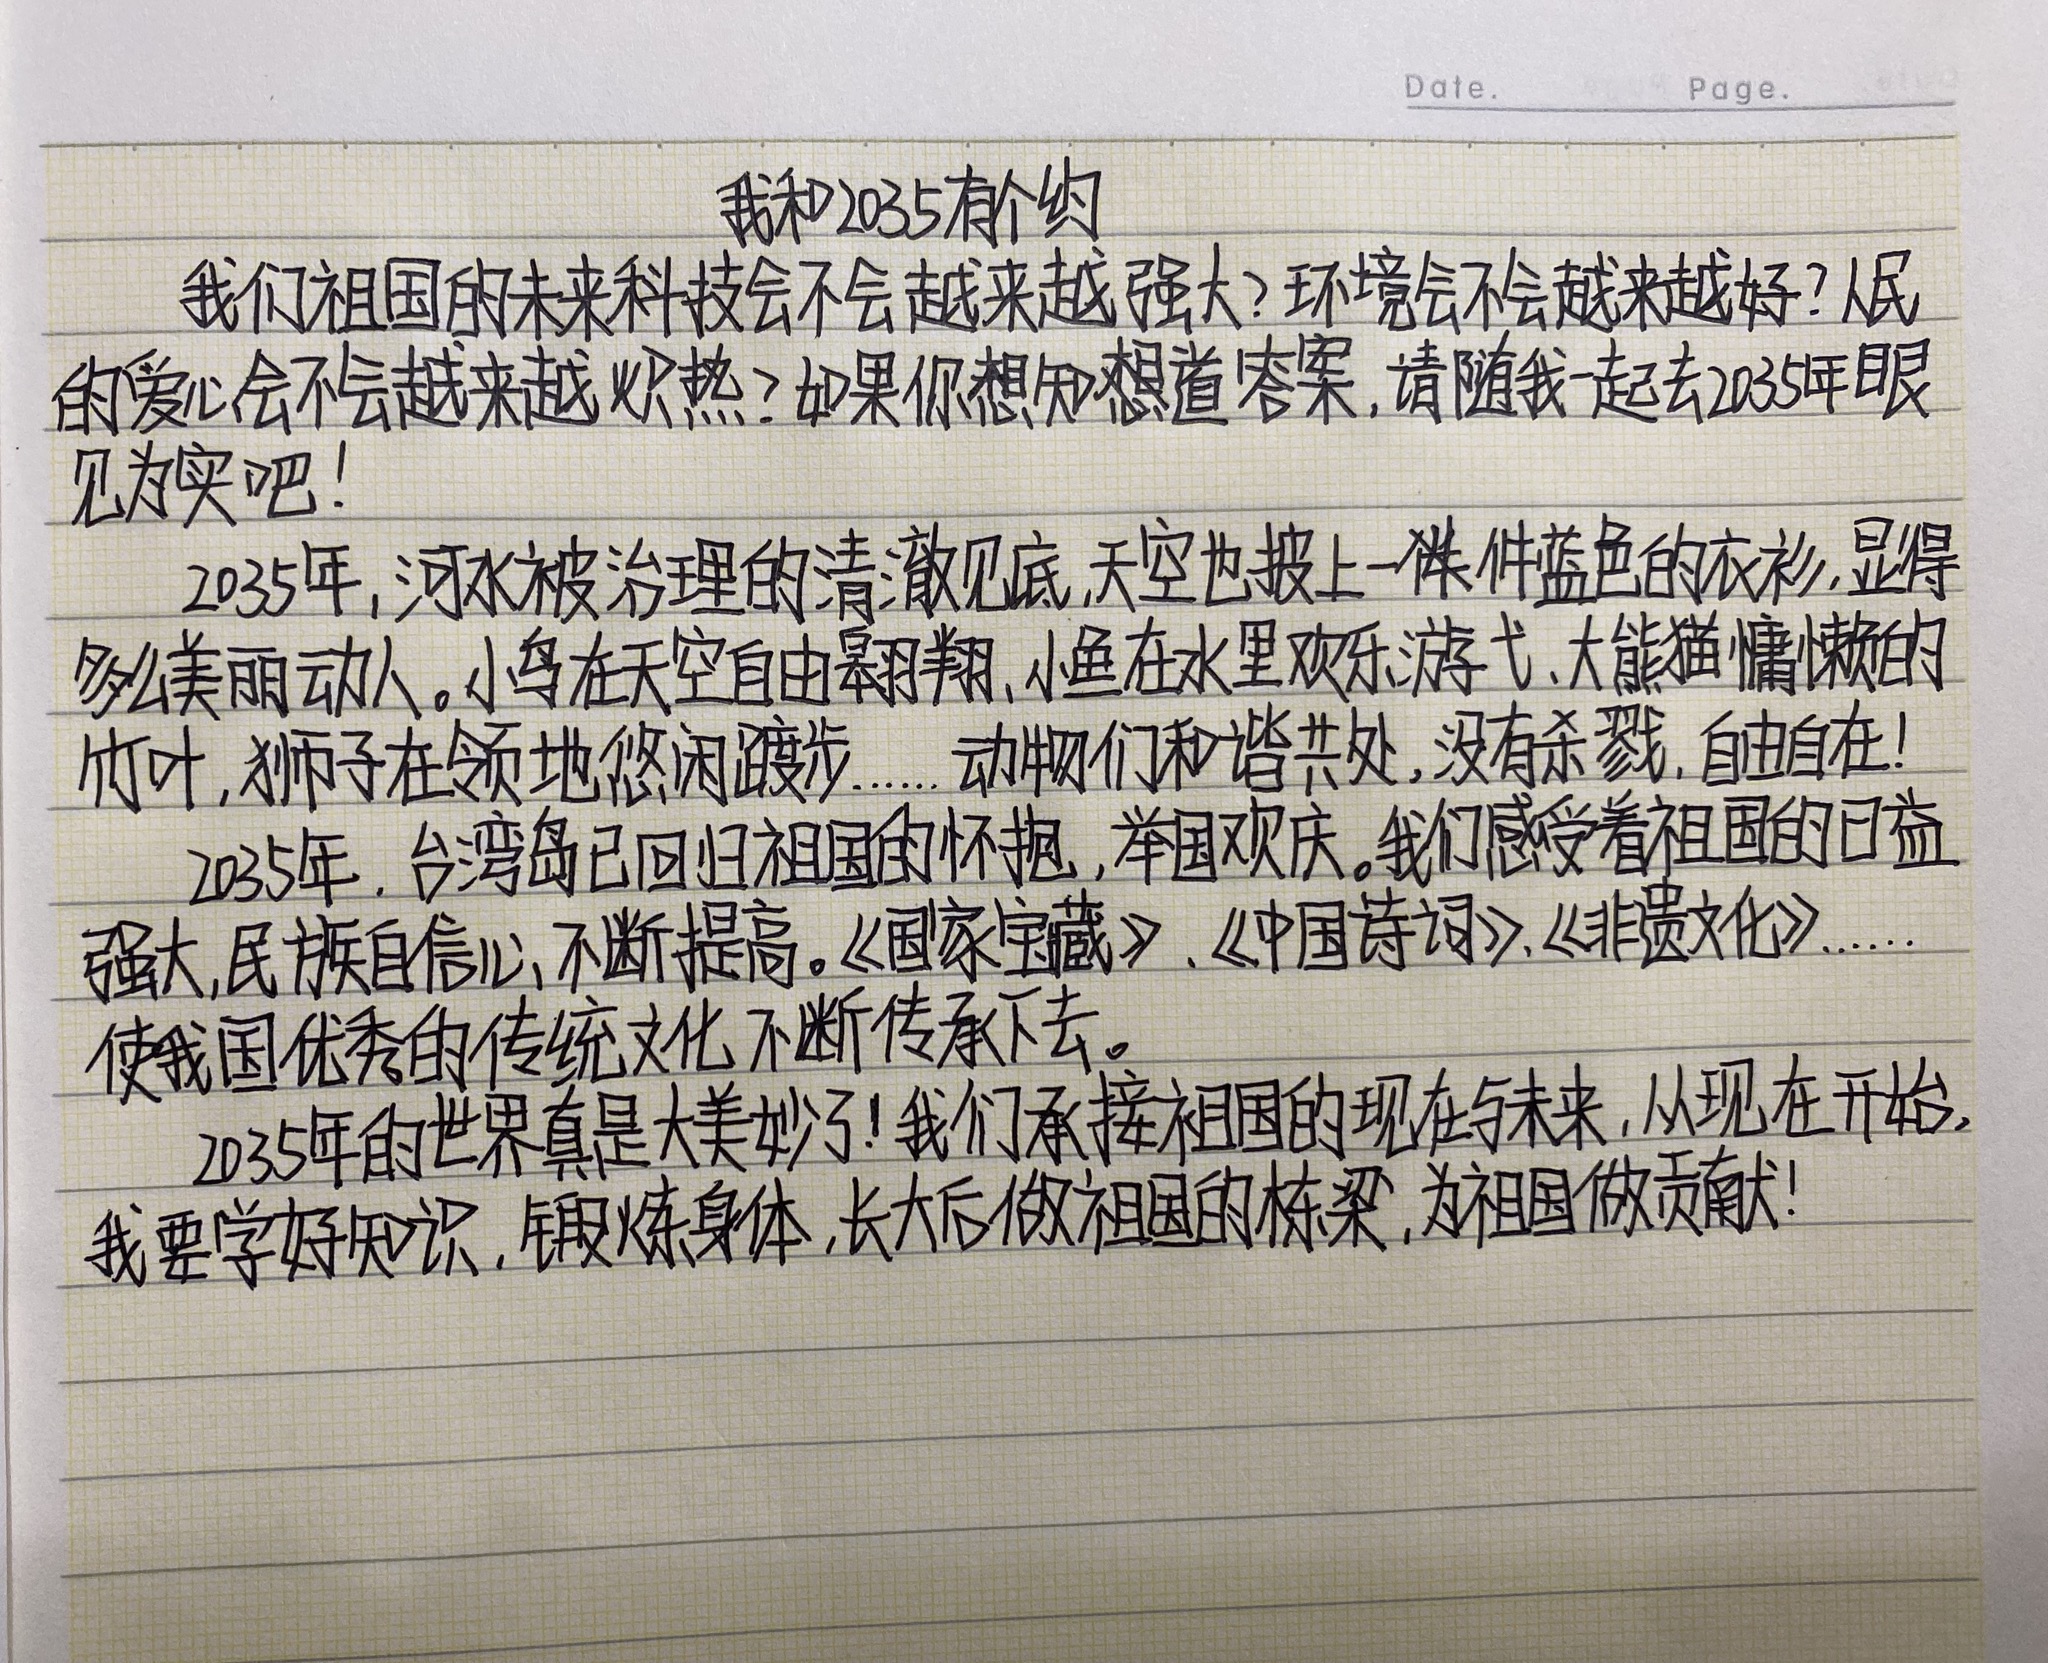 Date. Page.
我和2035有个约
我们祖国的未来科技会不会越来越强大？环境会不会越来越好？人民
的爱心会不会越来越炽热？如果你想知想道答案，请随我一起去2035年眼
见为实吧！
2035年，河水被治理的清澈见底，天空也披上一件蓝色的衣衫，显得
多么美丽动人。小鸟在天空自由翱翔，小鱼在水里欢乐游弋、大熊猫慵懒的
竹叶，狮子在领地悠闲踱步……动物们和谐共处，没有杀戮，自由自在！
2035年，台湾岛已回归祖国的怀抱，举国欢庆。我们感受着祖国的日益
强大，民族自信心、不断提高。《国家宝藏》、《中国诗词》、《非遗文化》……
使我国优秀的传统文化不断传承下去。
2035年的世界真是大美妙了！我们承接祖国的现在与未来，从现在开始，
我要学好知识，锻炼身体，长大后做祖国的栋梁，为祖国做贡献！